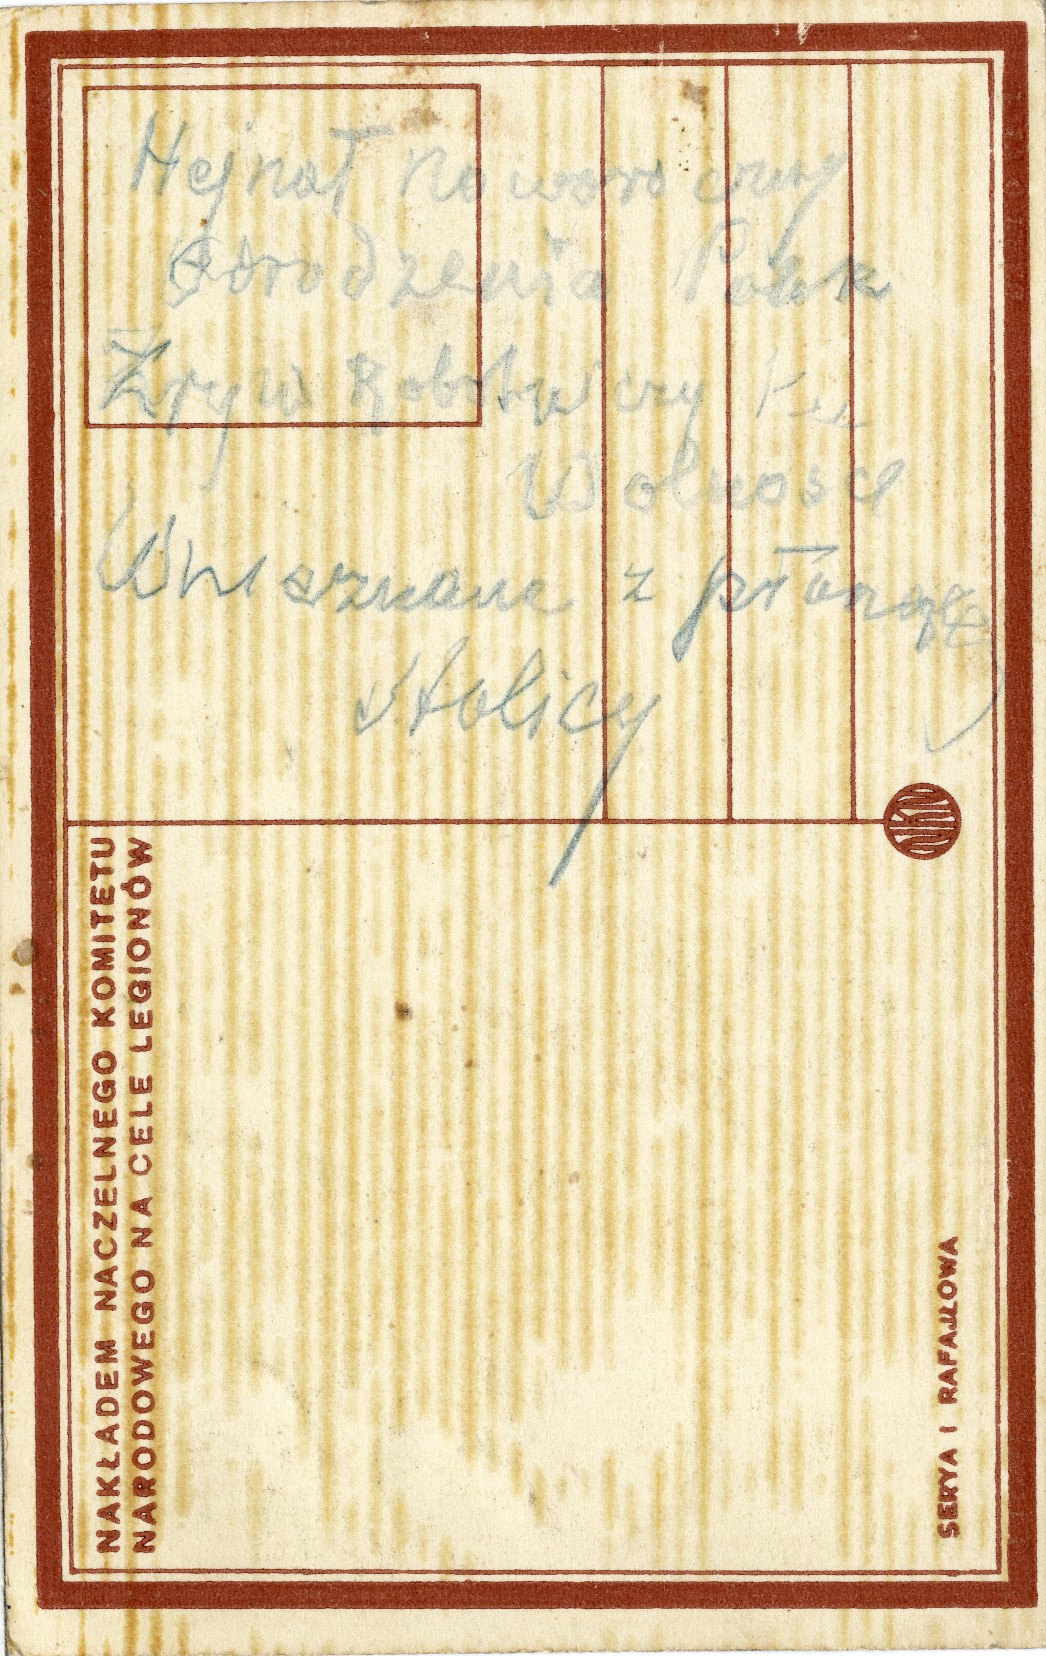 Hejnał Noworoczny
Odrodzenia
Zryw Robotniczy ku
Wolności
z
stolicy
NKN
NAKŁADEM NACZELNEGO KOMITETU
NARODOWEGO NA CELE LEGIONÓW
SERYA I RAFAJŁOWA